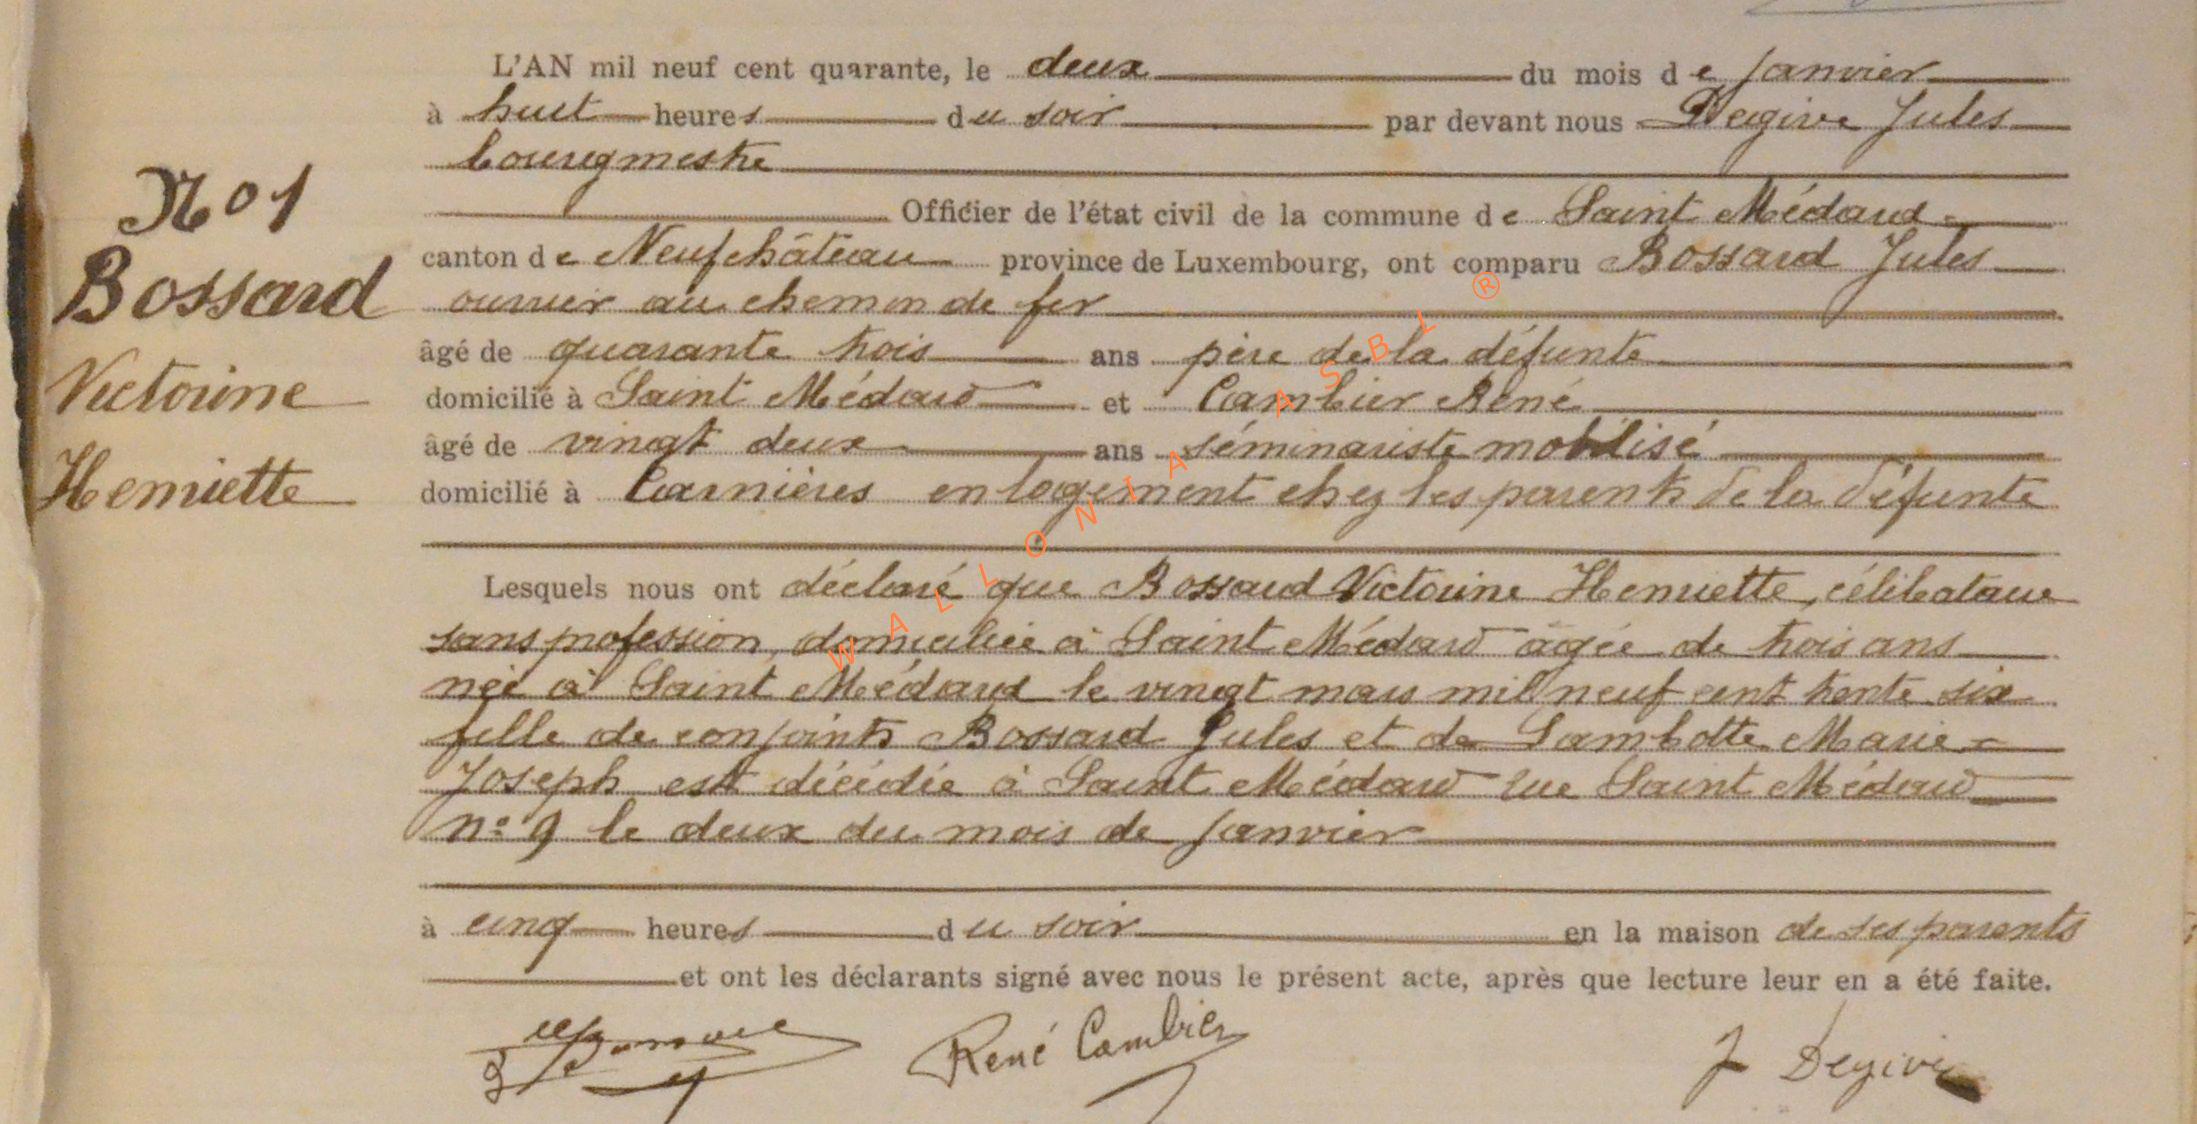 L'AN mil neuf cent quarante, le deux du mois de janvier
à huit heures du soir par devant nous Degive Jules
bourgmestre
Officier de l'état civil de la commune de Saint Médard
canton de Neufchâteau province de Luxembourg, ont comparu Bossard Jules
ouvrier au chemin de fer
âgé de quarante trois ans père de la défunte
domicilié à Saint Médard et Cambier René
âgé de vingt deux ans séminariste mobilisé
domicilié à Carnières en logement chez les parents de la défunte
Nº 1
Bossard
Victorine
Henriette
Lesquels nous ont déclaré que Bossard Victorine Henriette, célibataire
sans profession, domiciliée à Saint Médard âgée de trois ans
née à Saint Médard le vingt mars mil neuf cent trente six
fille de conjoints Bossard Jules et de Lambotte Marie-
Joseph est décédée à Saint Médard rue Saint Médard
nº 9 le deux du mois de janvier
à cinq heures du soir en la maison de ses parents
et ont les déclarants signé avec nous le présent acte, après que lecture leur en a été faite.
René Cambier
J Degive
WALLONIA ASBL ®